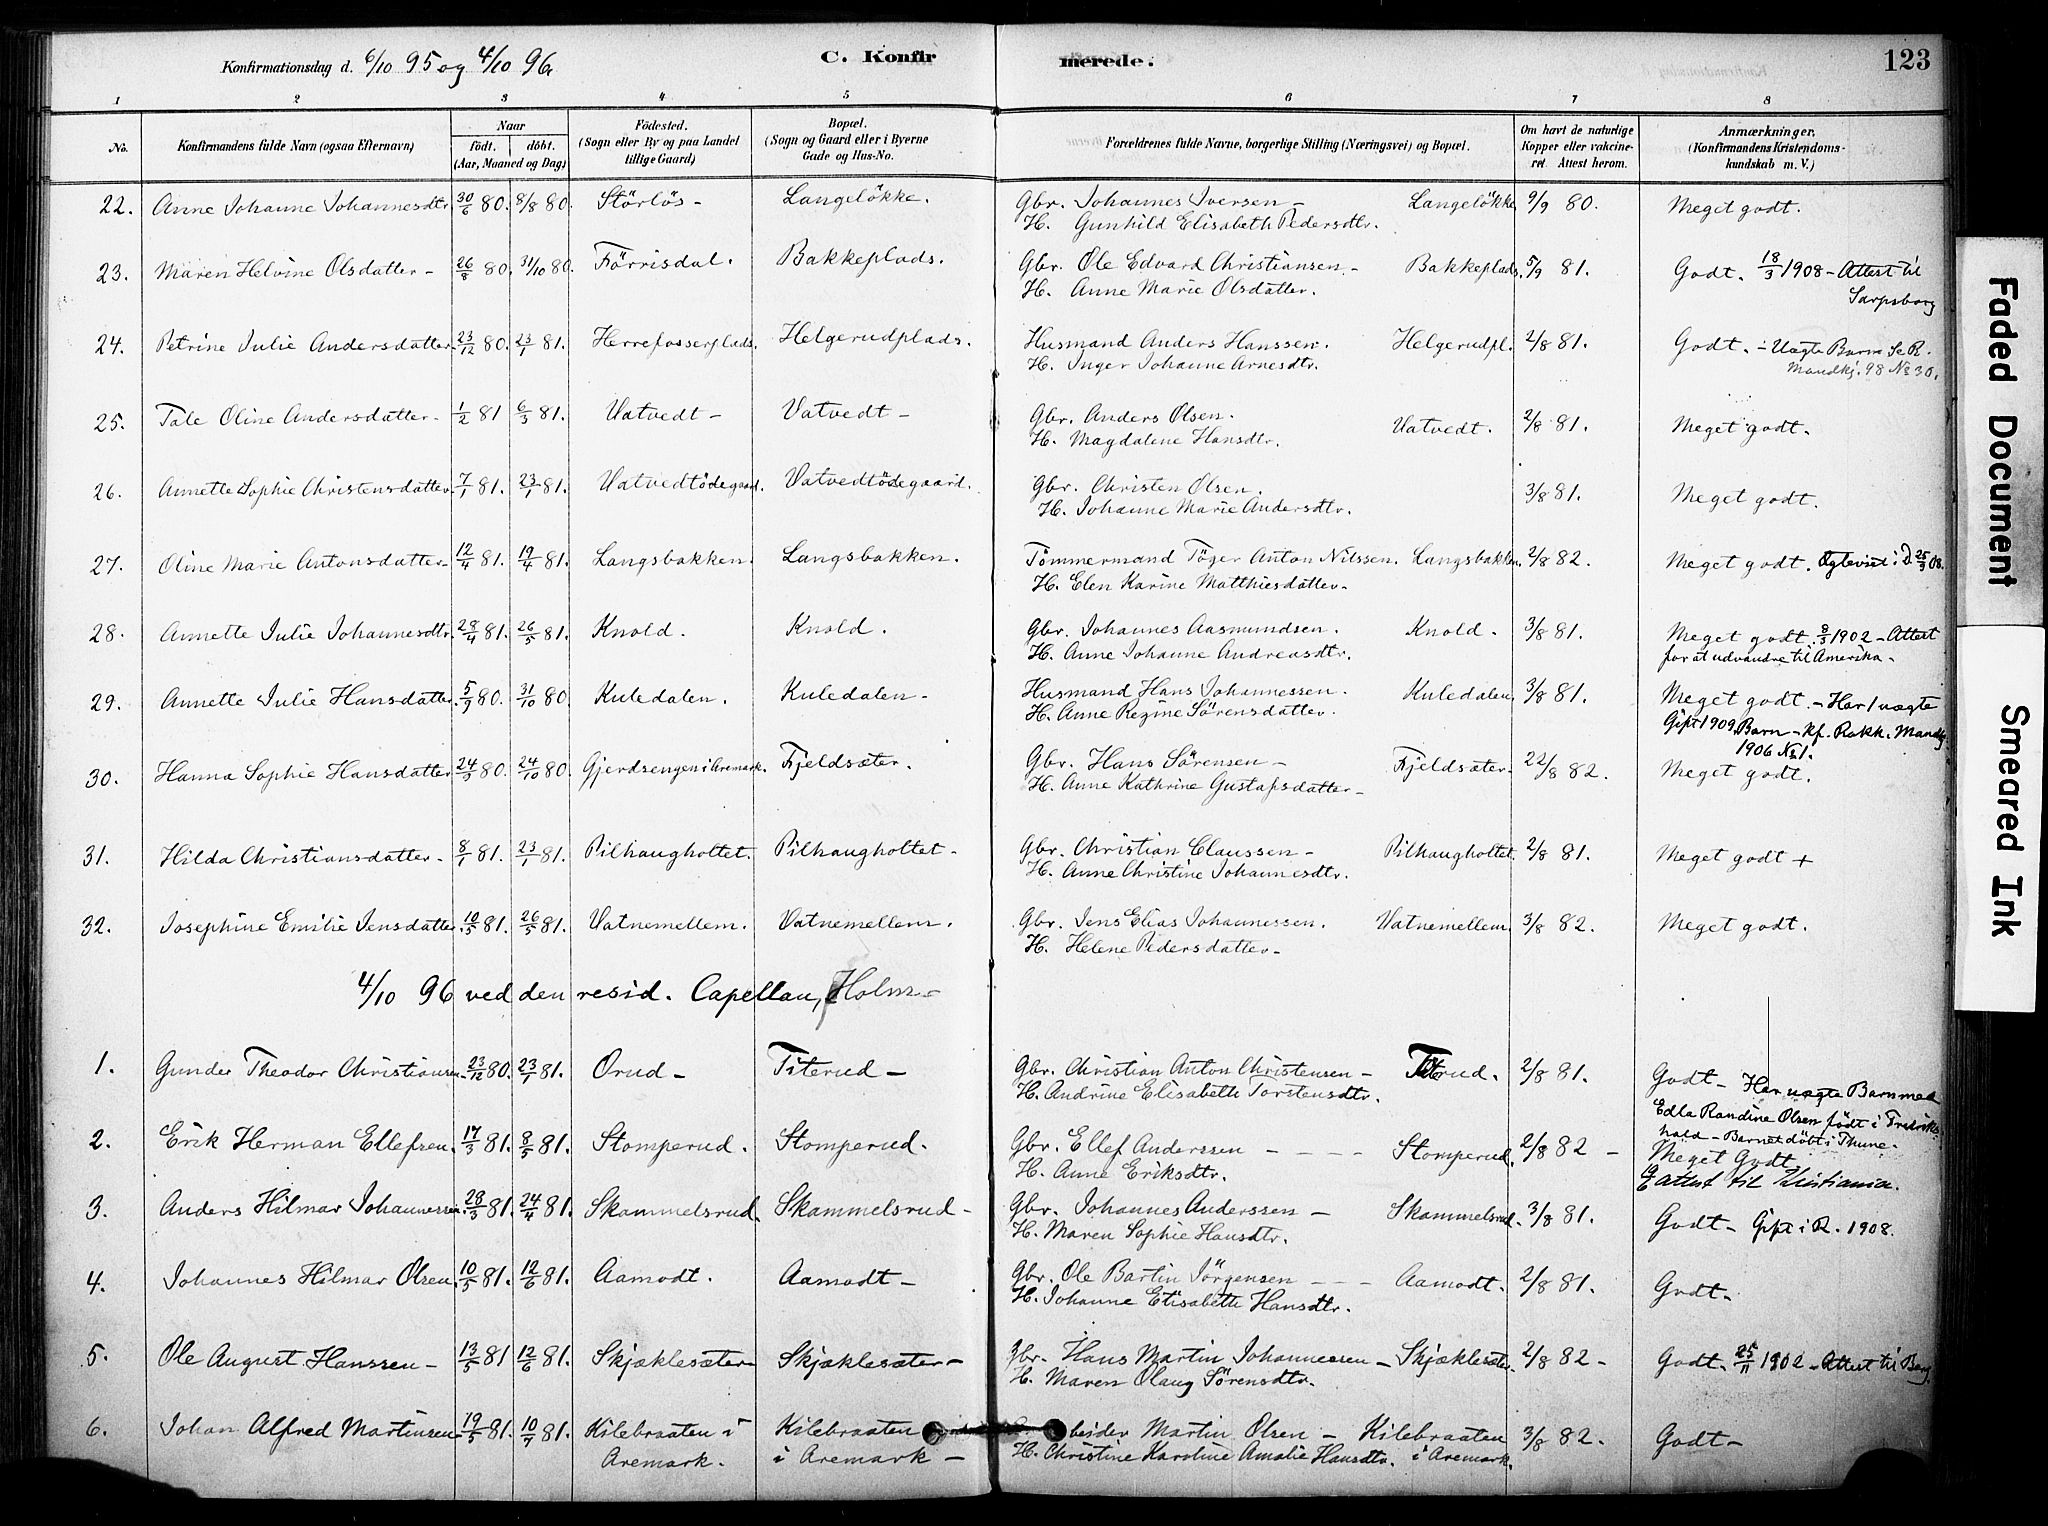 Konfirmationsdag d. 6/10 95 og 4/10 96
C. Konfirmerede.
123
1 2 3 4 5 6 7 8
No.
Konfirmandens fulde Navn (ogsaa Efternavn)
Naar
født. døbt.
(Aar, Maaned og Dag)
Fødested.
(Sogn eller By og paa Landet
tillige Gaard)
Bopæl.
(Sogn og Gaard eller i Byerne
Gade og Hus-No.
Forældrenes fulde Navne, borgerlige Stilling (Næringsvei) og Bopæl.
Om havt de naturlige
Kopper eller vakcine-
ret. Attest herom.
Anmærkninger.
(Konfirmandens Kristendoms-
kundskab m. V.)
22. Anne Johanne Johannesdtr. 30/6 80. 8/8 80. Störlös - Langelökke. Gbr. Johannes Iversen - Langelökke. 9/9 80. Meget godt.
H. Gunhild Elisabeth Pedersdtr.
23. Maren Helvine Olsdatter - 26/8 80. 31/10 80. Förrisdal. Bakkeplads. Gbr. Ole Edvard Christiansen - Bakkeplads. 5/9 81. Godt. 18/3 1908 - Attest til
H. Anne Marie Olsdatter. Sarpsborg
24. Petrine Julie Andersdatter 23/12 80. 23/1 81. Herrefosserplads. Helgerudplads. Husmand Anders Hanssen. Helgerudpl. 2/8 81. Godt. - Uægte Barn Se R.
H. Inger Johanne Arnesdtr. Mandkj. 98 No 30.
25. Tale Oline Andersdatter - 1/2 81 6/3 81. Vatvedt - Vatvedt - Gbr. Anders Olsen. Vatvedt. 2/8 81. Meget godt.
H. Magdalene Hansdtr.
26. Annette Sophie Christensdatter 7/1 81. 23/1 81. Vatvedtödegaard. Vatvedtödegaard. Gbr. Christen Olsen. 3/8 81. Meget godt.
H. Johanne Marie Andersdtr.
27. Oline Marie Antonsdatter 12/4 81. 19/4 81. Langsbakken. Langsbakken. Tömmermand Töger Anton Nilssen. Langsbakken. 2/8 82. Meget godt. Ægteviet i D 25/3 08.
H. Elen Karine Matthiesdatter -
28. Annette Julie Johannesdtr. 28/4 81. 26/5 81. Knold. Knold. Gbr. Johannes Aasmundsen. Knold. 3/8 81. Meget godt. 8/3 1902 - Attest
H. Anne Johanne Andreasdtr. for at udvandre til Amerika -
29. Annette Julie Hansdatter. 5/9 80. 31/10 80. Kuledalen. Kuledalen - Husmand Hans Johannessen. Kuledalen. 3/8 81. Meget godt. - Har 1 uægte
H. Anne Regine Sörensdatter. Gift 1909. Barn - Kf. Rakk. Mandkj.
1906 No 1.
30. Hanna Sophie Hansdatter 24/9 80. 24/10 80. Gjerdsengen i Aremark. Fjeldsæter. Gbr. Hans Sörensen - Fjeldsæter - 22/8 82. Meget godt.
H. Anne Kathrine Gustafsdatter -
31. Hilda Christiansdatter - 8/1 81. 23/1 81. Pilhaugholtet. Pilhaugholtet - Gbr. Christian Claussen - Pilhaugholtet. 2/8 81. Meget godt +
H. Anne Christine Johannesdtr.
32. Josephine Emilie Jensdatter. 10/5 81. 26/5 81. Vatnemellem. Vatnemellem. Gbr. Jens Elias Johannessen. Vatnemellem. 3/8 82. Meget godt.
H. Helene Pedersdatter -
4/10 96 ved den resid. Capellan, Holm -
1. Gunder Theodor Christiansen 23/12 80. 23/1 81. Orud - Titerud - Gbr. Christian Anton Christensen - Titerud. 2/8 81. Godt - Har uægte Barn med
H. Andrine Elisabeth Torstensdtr. Edla Randine Olsen født i Fredriks-
hald - Barnet döbt i Thune -
2. Erik Herman Ellefsen. 17/3 81. 8/5 81. Stomperud. Stomperud. Gbr. Ellef Anderssen - - - - Stomperud. 2/8 82 - Meget Godt
H. Anne Eriksdtr. attest til Kristiania.
3. Anders Hilmar Johannessen. 28/3 81. 24/4 81. Skammelsrud. Skammelsrud - Gbr. Johannes Anderssen - Skammelsrud. 3/8 81. Godt - Gift i R. 1908.
H. Maren Sophie Hansdtr.
4. Johannes Hilmar Olsen. 10/5 81. 12/6 81. Aamodt. Aamodt - Gbr. Ole Bartin Jörgensen - - - Aamodt. 2/8 81. Godt -
H. Johanne Elisabeth Hansdtr.
5. Ole August Hanssen - 13/5 81 12/6 81. Skjæklesæter - Skjæklesæter - Gbr. Hans Martin Johannessen - Skjæklesæter. 2/8 82 - Godt. 25/11 1902 - Attest til Berg.
H. Maren Olaug Sörensdtr.
6. Johan Alfred Martinsen 19/5 81. 10/7 81. Kilebraaten i Kilebraaten beider Martin Olsen - Kilebraaten 3/8 82. Godt -
Aremark. i Aremark - H. Christine Karoline Amalie Hansdtr. i Aremark.
Faded Document
Smeared Ink